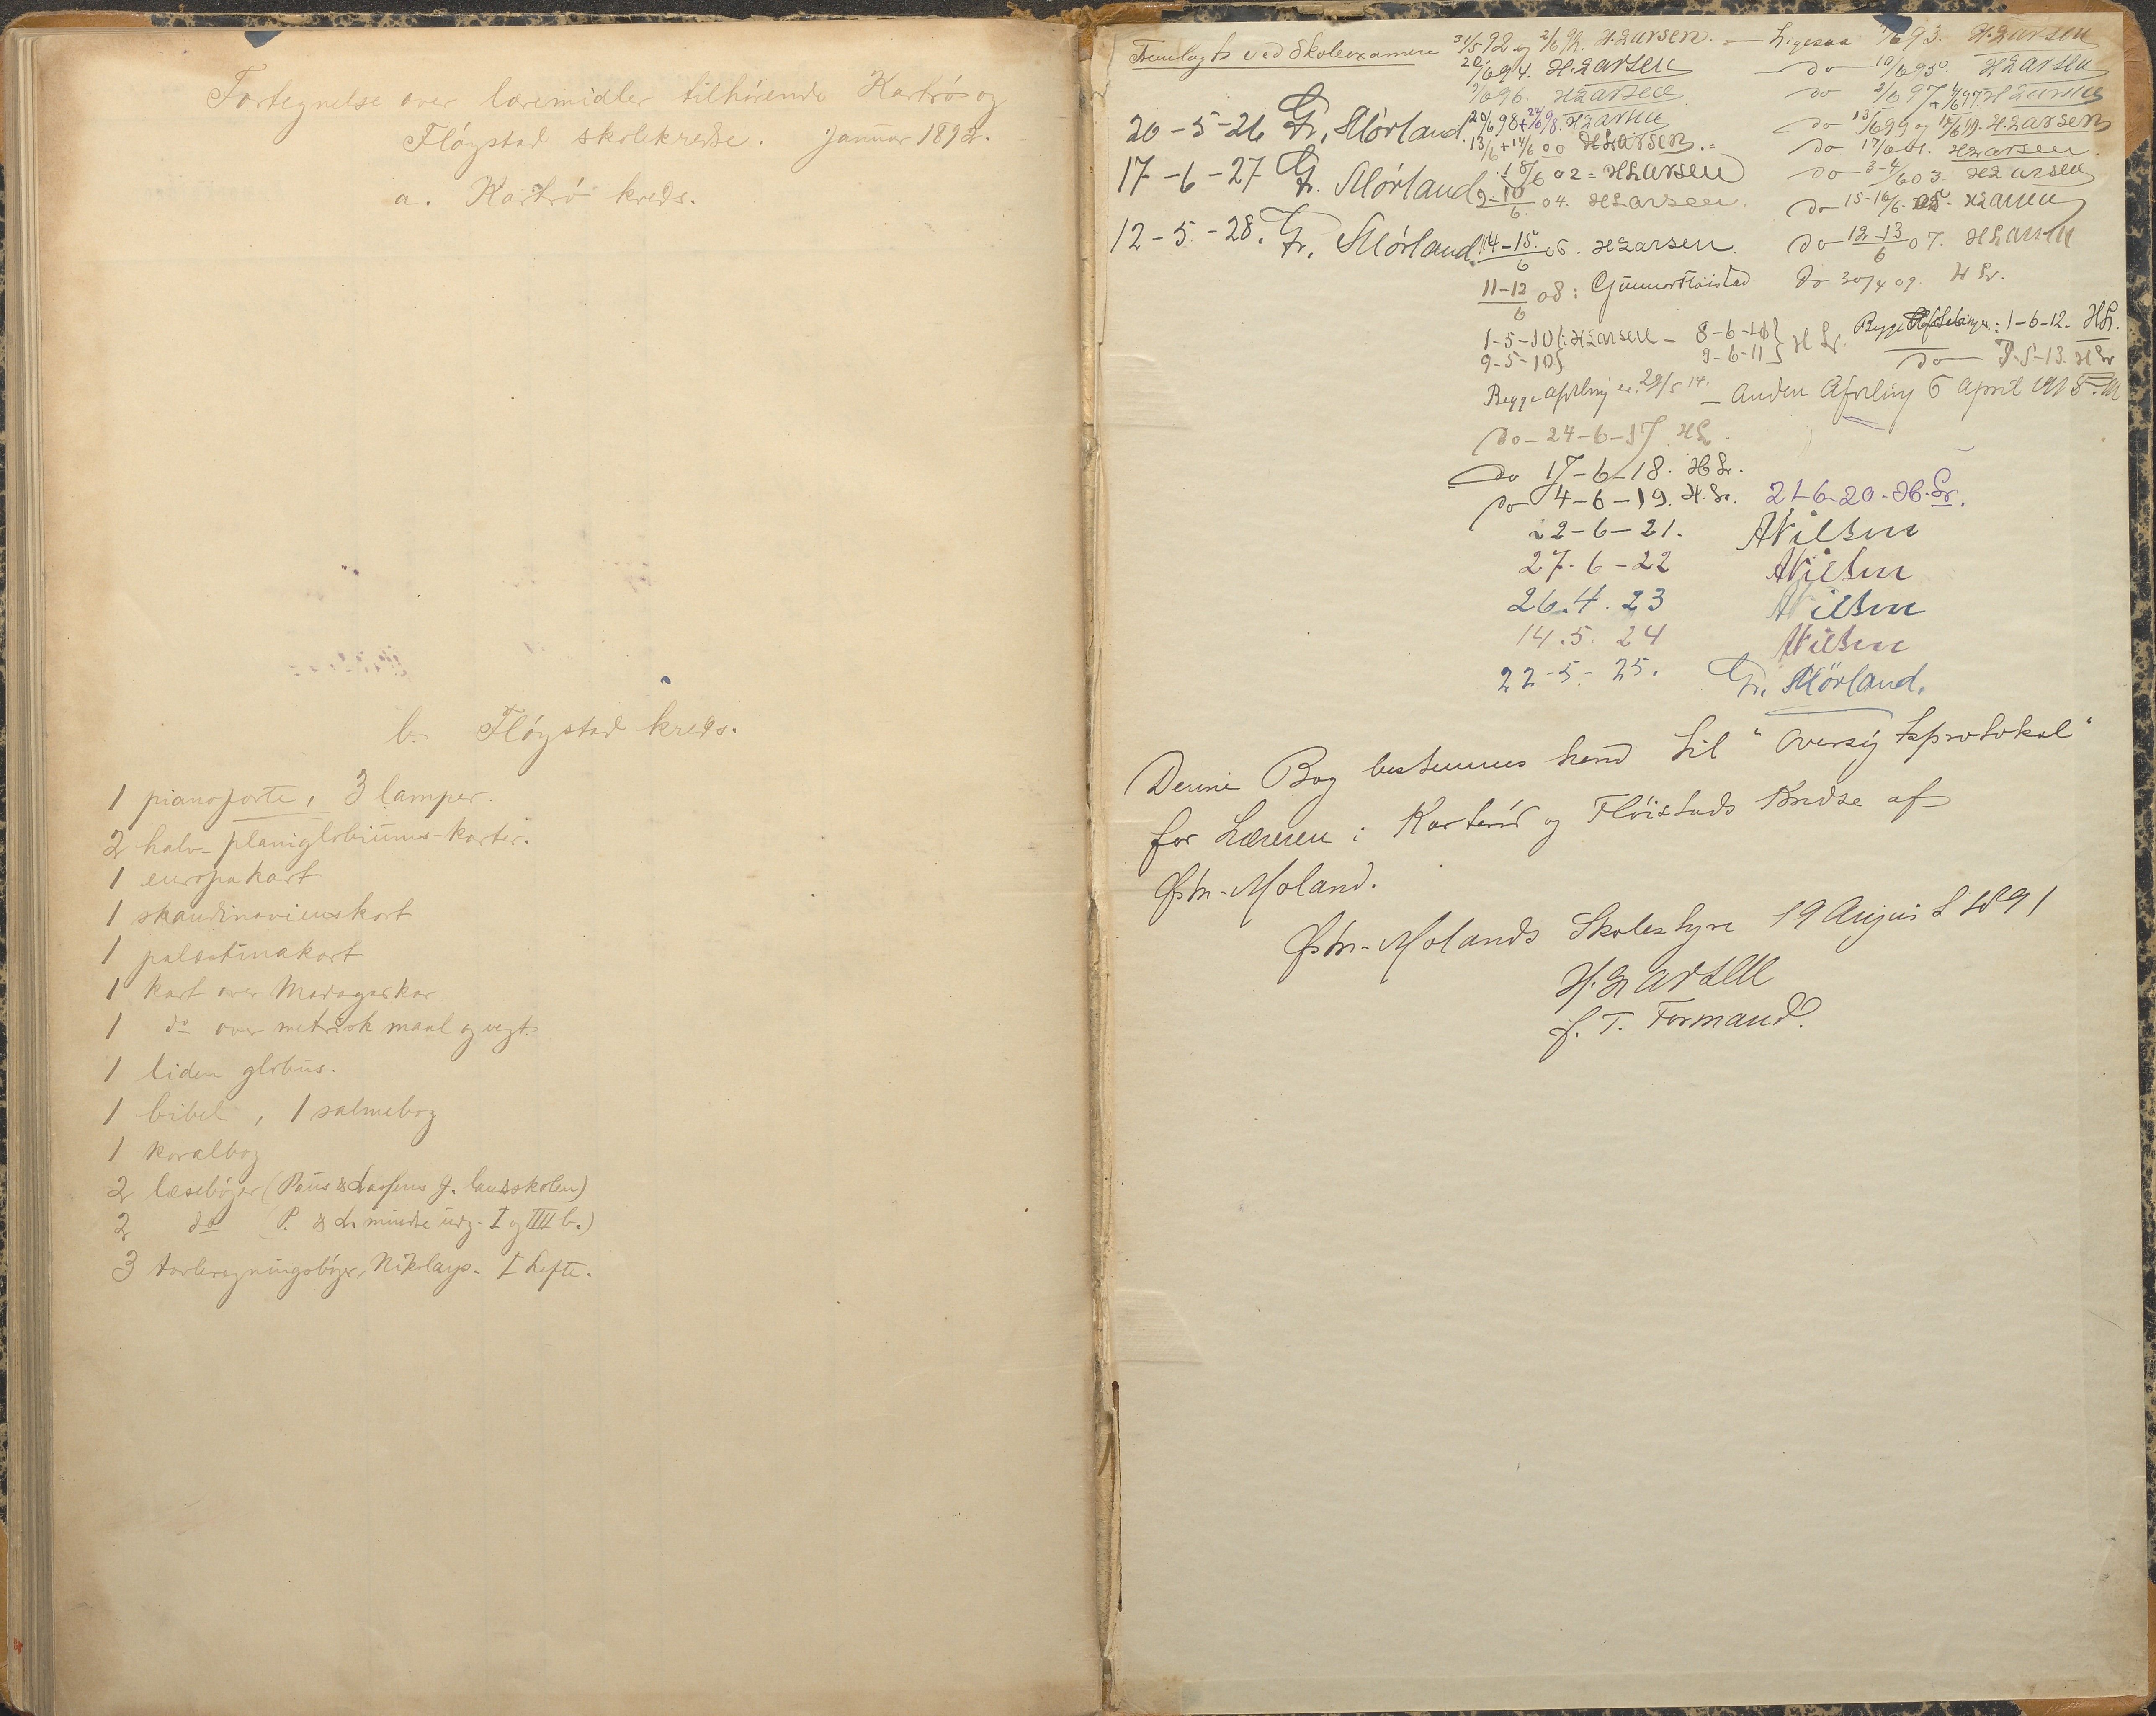 Fortegnelse over læremidler tilhørende Kartrø og
Fløystad skolekredse. Januar 1892.
a. Kartrø kreds.
b. Fløystad kreds.
1 pianoforte, 3 lamper.
2 halv-planiglobiums-karter.
1 europakart
1 skandinavienskart
1 palæstinakart
1 kart over Madagaskar
1 do over metrisk maal og vegt.
1 liden globus.
1 bibel, 1 salmebog
1 koralbog
2 læsebøger (Paus & Lassens f. landsskolen)
2 do (P. & L. mindre udg. I og III b.)
3 tavleregningsbøger, Nikolays. I hefte.
Fremlagt ved Skoleexamen 31/5 92 og 2/6 92. H. Larsen. — Ligesaa /6 93. H. Larsen
20/6 94. H. Larsen — do 10/6 95. H Larsen
/6 96. H Larsen do 2/6 97 + 4/6 97. H Larsen
20-5-26 Fr. Mørland. 20/6 98 + 24/6 98. H Larsen do 13/6 99 og 14/6 99. H. Larsen
13/6 + 14/6 00 H Larsen. do 17/6 01. H Larsen
17-6-27 Fr. Mørland 18/6 02 = H Larsen do 3-4/6 03. H Larsen
9-10/6. 04. H Larsen. do 15-16/6. 05. H Larsen
12-5-28. Fr. Mørland. 14-15./6 06. H Larsen do 12-13/6 07. H Larsen
11-12/6 08: Gunnar Fløistad do 30/4 09. H Lr.
1-5-10 H Larsen — 8-6-10 H Lr. Begge Afdelinger: 1-6-12. H Lr.
9-5-10 9-6-11 do 8-5-13. H Lr
Begge afdelinger 29/5 14. — Anden Afdeling 6 April 1915.
do - 24-6-17 H L.
do 17-6-18. H Lr.
do 4-6-19. H. Lr. 21-6-20. H. Lr.
22-6-21. A Nilsen
27-6-22 A Nilsen
26.4.23 A Nilsen
14.5.24 A Nilsen
22-5-25. Fr. Mørland.
Denne Bog bestemmes herved til "Oversigtsprotokol"
for Læreren i Karterød og Fløistads Kredse af
Østre-Moland.
Østre-Molands Skolestyre 19 August 1891
H. Larsen
f. T. Formand.